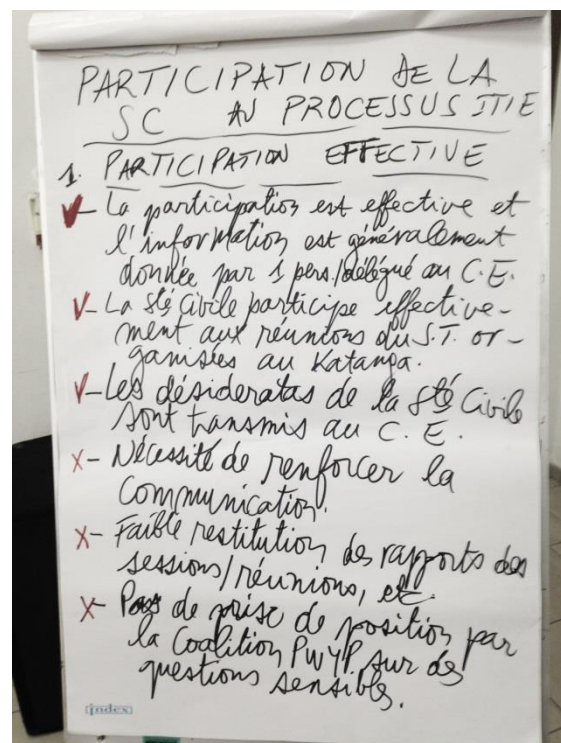 PARTICIPATION DE LA
SC AU PROCESSUS ITIE
1. PARTICIPATION EFFECTIVE
V- La participation est effective et
l'information est généralement
donnée par 1 pers./délégué au C.E.
V- La sté Civile participe effective-
ment aux réunions du S.T. or-
ganisées au Katanga.
V- Les désideratas de la sté Civile
sont transmis au C.E.
X- Nécessité de renforcer la
Communication.
X- Faible restitution des rapports des
sessions/réunions, etc.
X- Pas de prise de position par
la Coalition PWYP sur des
questions sensibles.
index